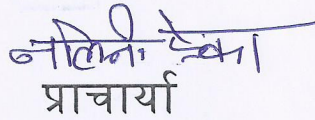 नलिनी
प्राचार्या